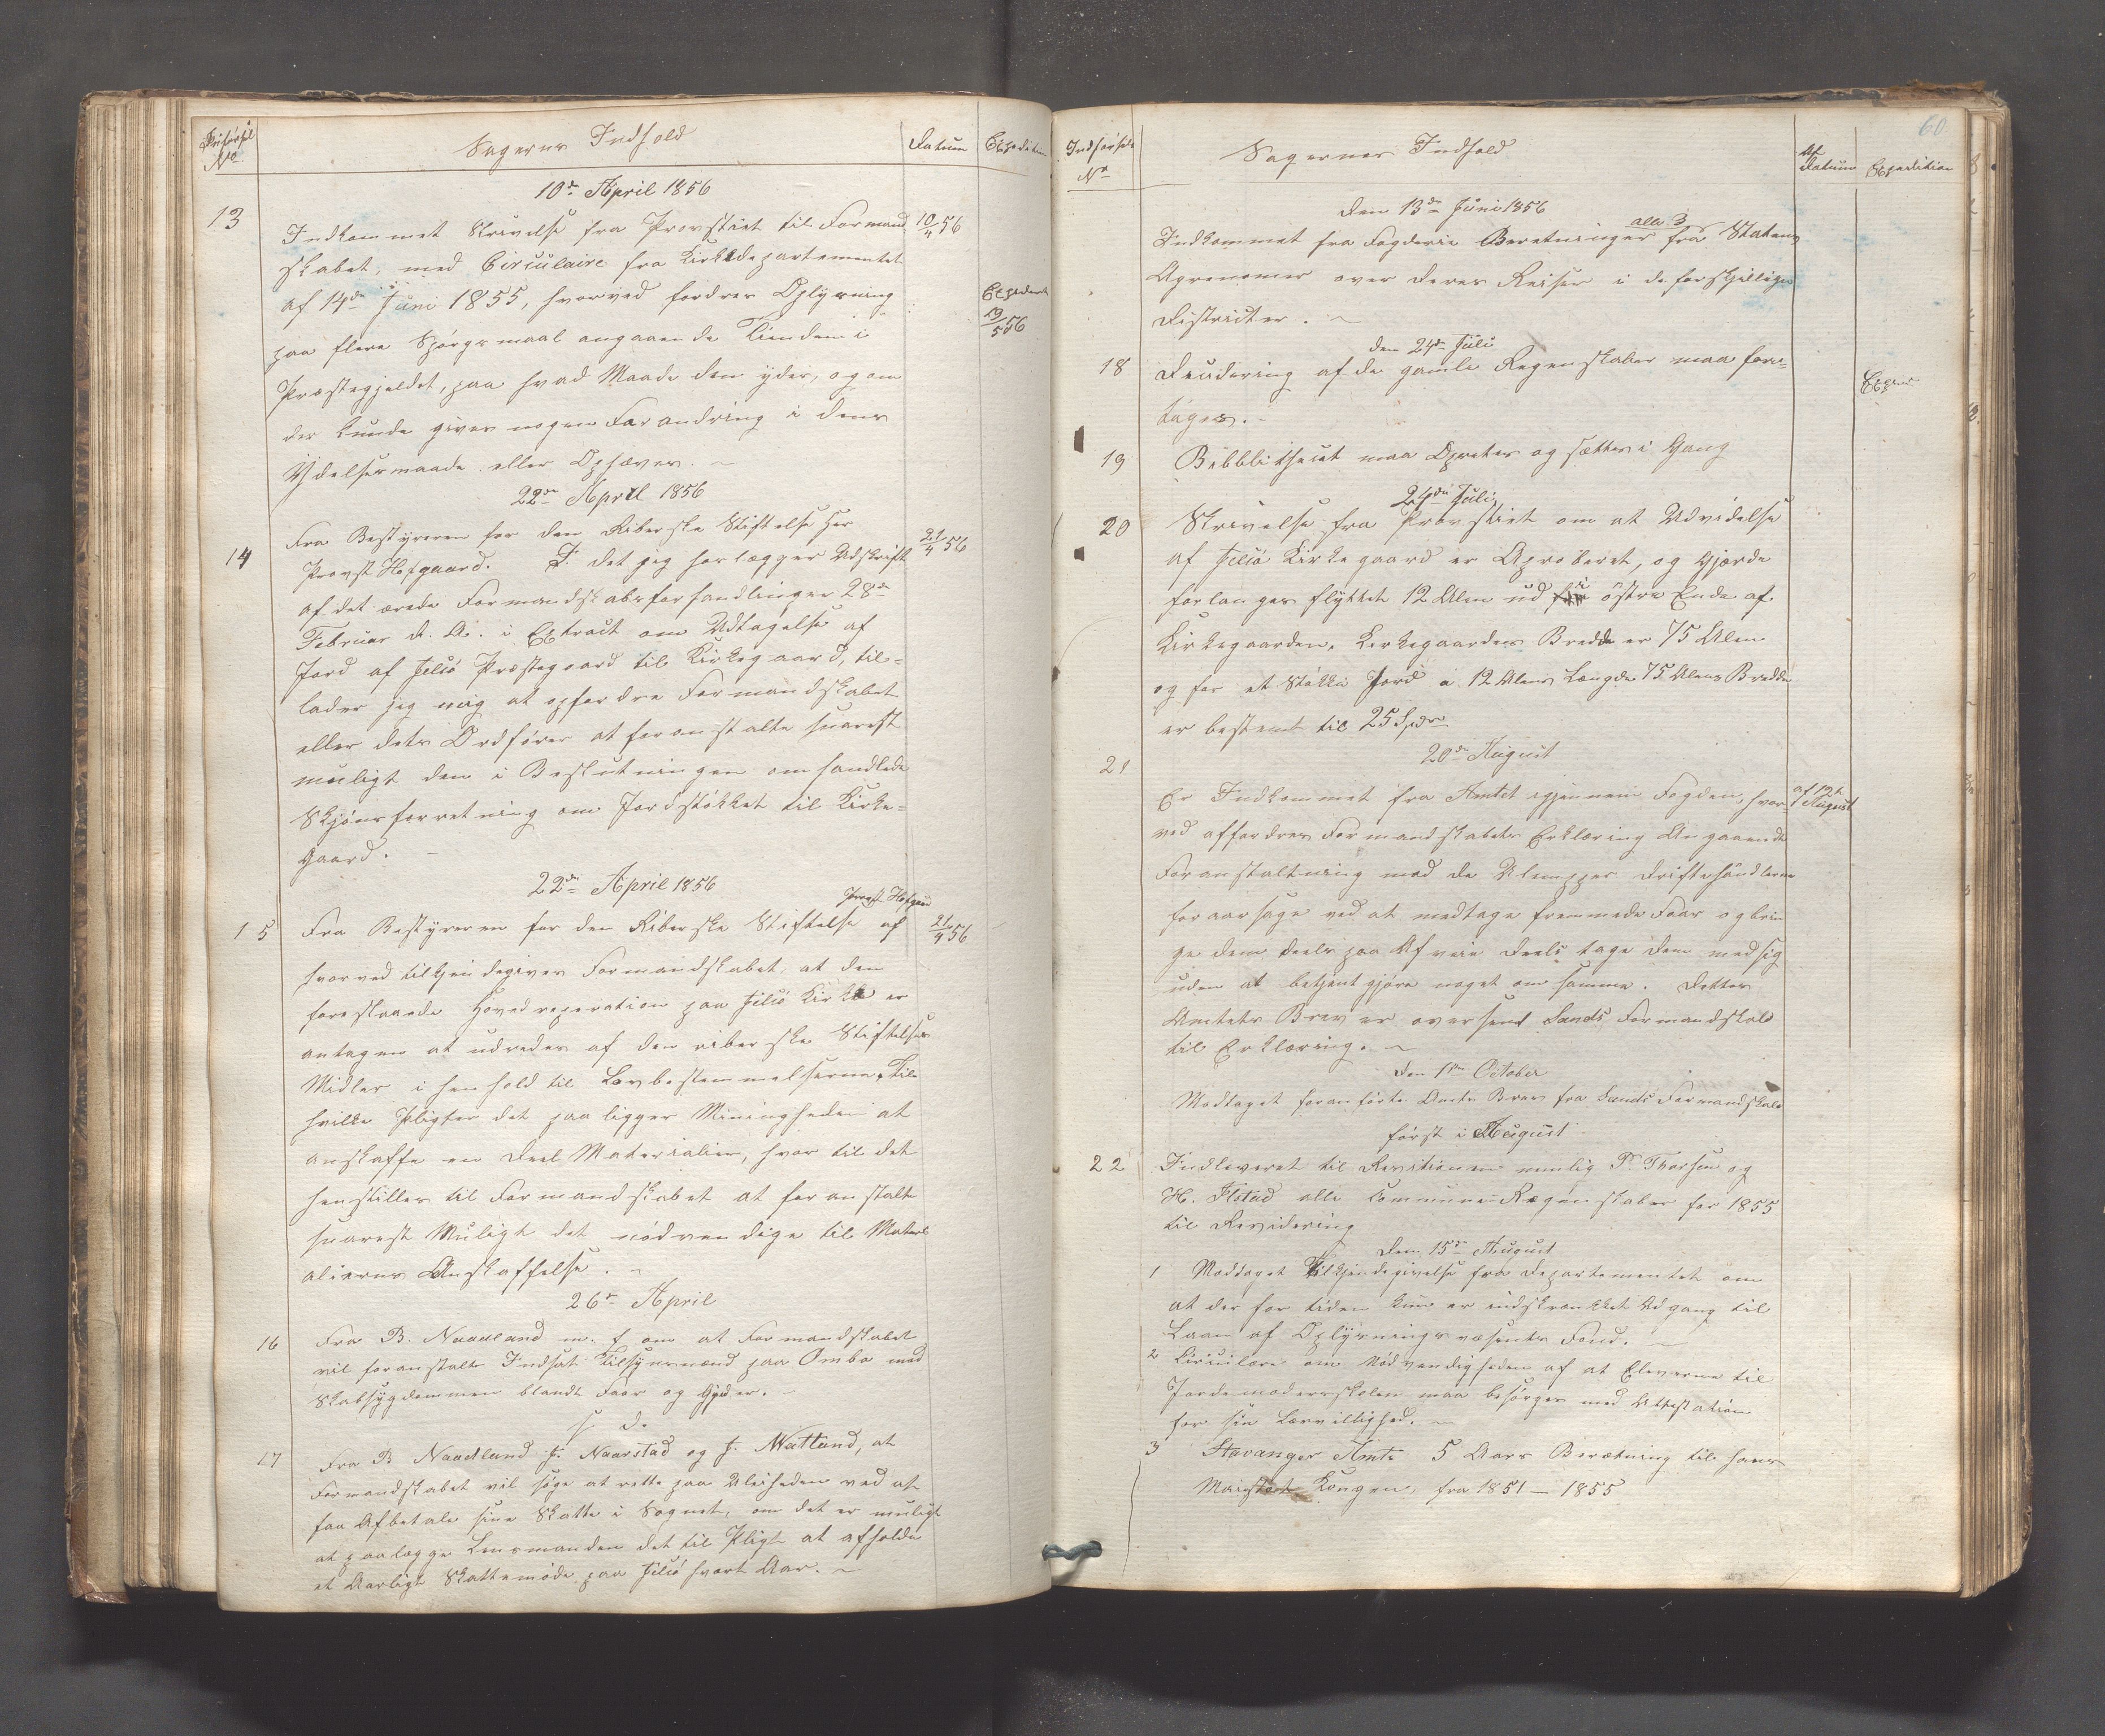 Indførsel
No
Sagernes Indhold
Datum
Expedition
10de April 1856
13
Indkommet Skrivelse fra Provstiet til Formand-
10/4 56
skabet, med Circulaire fra Kirkedepartementet
af 14de Juni 1855, hvorved fordres Oplysning
Expedert
19/5 56
paa flere Spørgsmaal angaaende Tienden i
Præstegjeldet, paa hvad Maade den ydes, og om
der kunde gives nogen Forandring i dens
Ydelsesmaade eller Ophæves. ~
22de April 1856
14
Fra Bestyreren for den Riberske Stiftelse Hr
21/4 56
Provst Hofgaard. I det jeg forlægger Udskrift
af det ærede Formandskabsforhandlinger 28de
Februar d. A. i Extract om Udtagelse af
Jord af Jelsø Præstegaard til Kirkegaard, til-
lader jeg mig at opfordre Formandskabet
eller dets Ordfører at foranstalte snarest
muligt den i Beslutningen omhandlede
Skjønsforretning om Jordstøkket til Kirke-
gaard. –
22de April 1856
Provst Hofgaard
15
Fra Bestyreren for den Riberske Stiftelse af
21/4 56
hvorved tilkjendegives Formandskabet, at den
foreslaaede Hovedreperation paa Jelsø Kirke er
antagen at udredes af den riberske Stiftelses
Midler i henhold til Lovbestemmelserne, Til
hvilke Pligter det paaligger Minigheden at
anskaffe en Deel Materialier, hvor til det
henstilles til Formandskabet at foranstalte
snarest Muligt det nødvendige til Materi
aliernes Anskaffelse. ~
26de April
16
Fra B. Naadland m. f om at Formandskabet
vil foranstalte Indsat Tilsynsmænd paa Ombo med
Skabsygdommen blandt Faar og Gjeder. –
s. d.
17
Fra B Naadland J. Naarstad og J. Watland, at
Formandskabet vil søge at rette paa Uleiheden ved at
faa Afbetale sine Skatte i Sognet, om det er muligt
at paalægge Lensmanden det til Pligt at afholde
et Aarligt Skattemøde paa Jelsø hvert Aar. ~
60
Indførsels
No
Sagernes Indhold
Af
Datum
Expedition
Den 13de Juni 1856
alle 3
Indkommet fra Fogderie Beretninger fra Statens
Agronomer over deres Reiser i de forskjellige
Districter. ~
den 24de Juli
18
Deudering af de gamle Regenskaber maa fore-
Exp
tages. –
19
Bibblitheket maa Oprettes og sættes i Gang
24de Juli
20
Skrivelse fra Provstiet om at Udvidelse
af Jelsø Kirkegaard er Aproberet, og Gjærde
forlanges flyttet 12 Alen ud i østre Ende af
Kirkegaarden. Kirkegaardens Bredde er 75 Alen
og for et Støkke Jord a 12 Alens Længde 75 Alens Bredde
er bestemt til 25 Spdr
20de August
21
Er Indkommet fra Amtet igjennem Fogden, hvor-
af 12te
August
ved affordres Formandskabets Erklæring Angaaende
Foranstaltning mod de Ulemper Driftehandlerne
foraarsage ved at medtage fremmede Faar og brin
ge dem deels paa Afveie Deels tage dem med sig
uden at betjent gjøre noget om samme. Dette
Amtets Brev er oversend Sands Formandskab
til Erklæring. ~
Den 1ste October
Modtaget foranførte Amts Brev fra Sands Formandskab
først i August
22
Indleveret til Revisionen nemlig P. Thorsen og
H. Ilstad alle Communen Regenskaber for 1855
til Revidering
Den 15de August
1 Modtaget Tilkjendegivelse fra Departementet om
at der for tiden kun er indskrænkket Adgang til
Laan af Oplysningsvæsenets Fond. ~
2 Circulære om Nødvendigheden af at Eleverne til
Jordemoderskolen maa besørges med Attestation
for sin Lærvillighed. ~
3 Stavanger Amts 5 Aars Beretning til hans
Maiestæt Kongen, fra 1851 – 1855